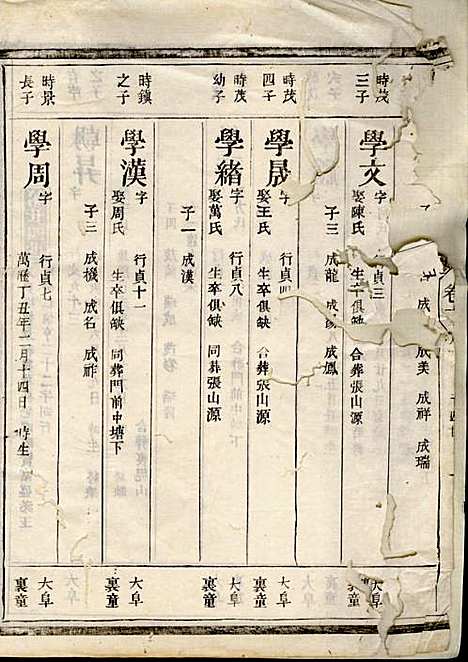 成美 成祥 成瑞
時茂
三子
學文
字
行貞三
娶陳氏
生卒俱缺 合葬張山源
大阜
裏童
子三 成龍 成鳳
時茂
四子
學晟
字
行貞四
娶王氏
生卒俱缺 合葬張山源
大阜
裏童
時茂
幼子
學緒
字
行貞八
娶萬氏
生卒俱缺 同葬張山源
大阜
裏童
子一 成漢
時鎮
之子
學漢
字
行貞十一
娶周氏
生卒俱缺 同葬門前中塘下
大阜
裏童
子三 成機 成名 成祚
時景
長子
學周
字
行貞七
萬曆丁丑年二月十四日 時生
大阜
裏童